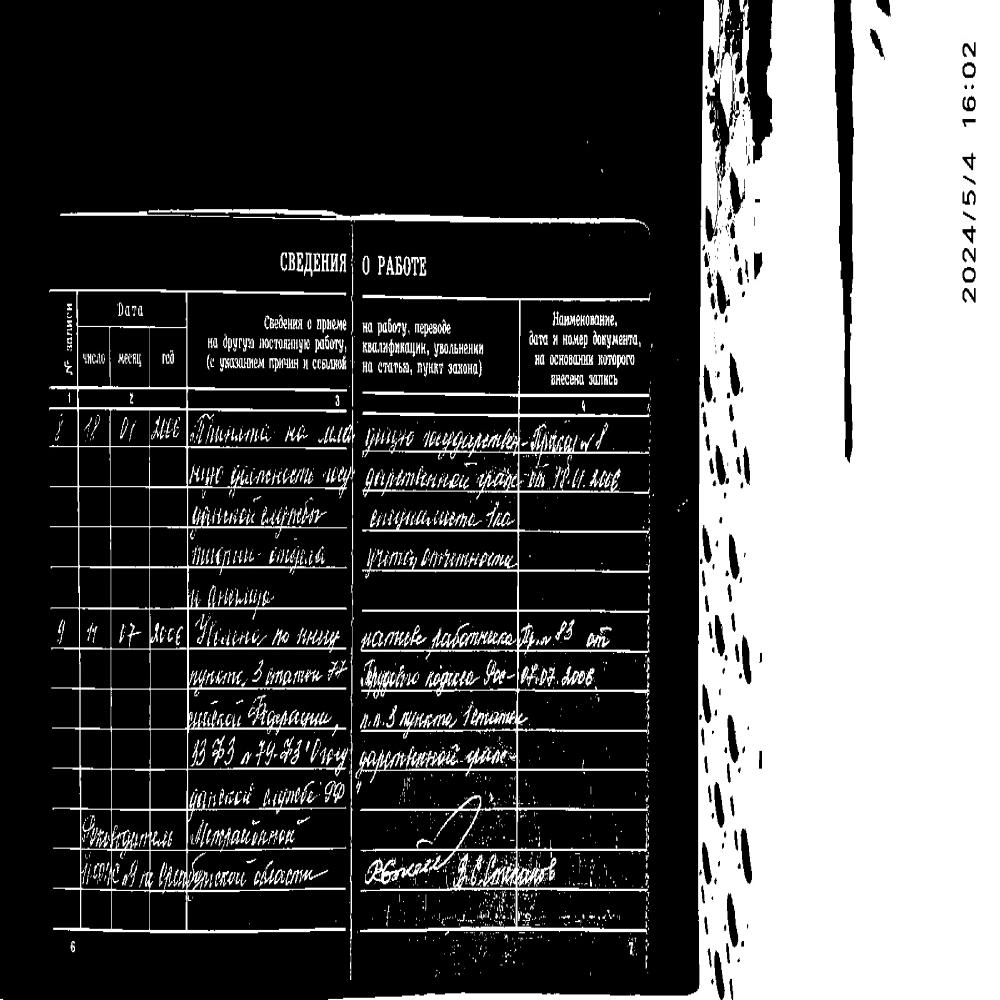 2024/5/4 16:02
СВЕДЕНИЯ О РАБОТЕ
№ записи
Дата
число месяц год
Сведения о приеме на работу, переводе
на другую постоянную работу, квалификации, увольнении
(с указанием причин и ссылкой на статью, пункт закона)
Наименование,
дата и номер документа,
на основании которого
внесена запись
1 2 3 4
8 18 01 2006 Принята на младшую государствен- Приказ №8
ную должность государственной граж- от 18.01.2006
данской службы специалиста 1 ка
тегории отдела учета, отчетности
и анализа
9 11 07 2006 Уволена по инициативе работника Пр.№ 83 от
пункт 3 статьи 77 Трудового кодекса Рос- 07.07.2006
сийской Федерации, п.п.3 пункта 1 статьи
33 ФЗ №79-ФЗ "О государственной граж-
данской службе РФ"
Руководитель Межрайонной
ИФНС №9 по Оренбургской области
6 7